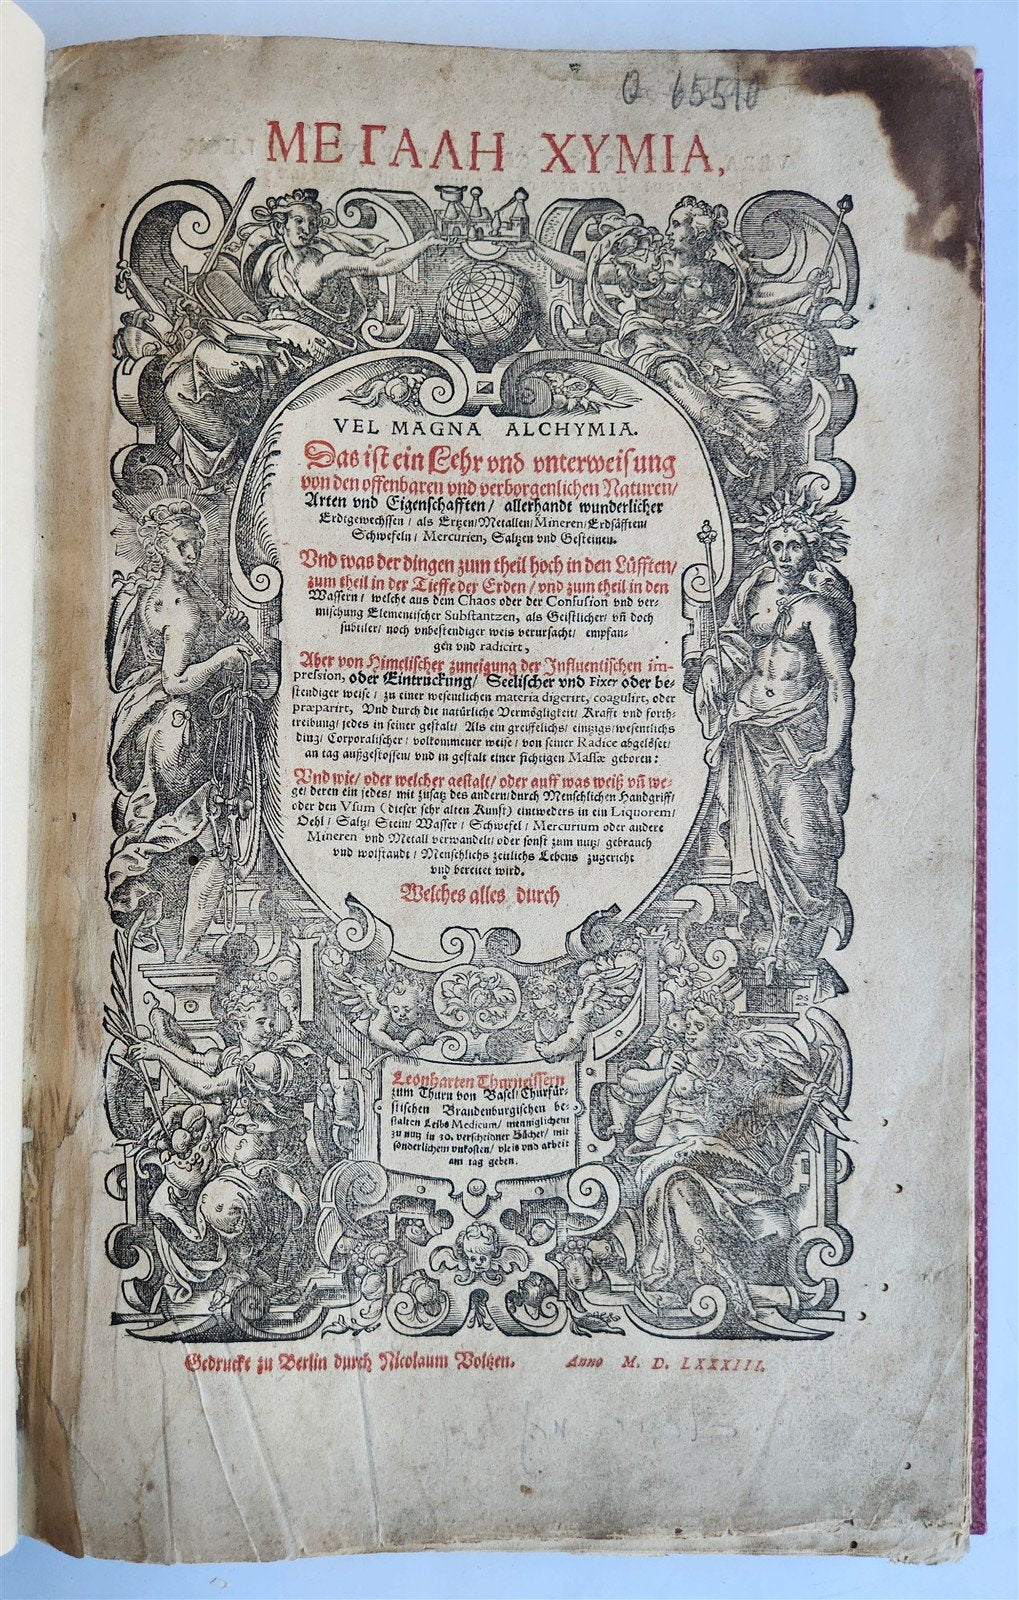 Q 65510
ΜΕΓΑΛΗ ΧΥΜΙΑ,
VEL MAGNA ALCHYMIA.
Das ist ein Lehr vnd vnterweisung
von den offenbaren vnd verborgenlichen Naturen/
Arten vnd Eigenschafften/ allerhandt wunderlicher
Erdtgewechssen/ als Ertzen/Metallen/Mineren/Erdsäfften/
Schwefeln/ Mercurien, Saltzen vnd Gesteinen.
Vnd was der dingen zum theil hoch in den Lüfften/
zum theil in der Tieffe der Erden/ vnd zum theil in den
Wassern/ welche aus dem Chaos oder der Confusion vnd ver-
mischung Elementischer Substantzen, als Geistlicher/ vñ doch
subtiler/ noch vnbestendiger weis verursacht/ empfan-
gen vnd radicirt,
Aber von Himelischer zuneigung der Influentischen im-
pression, oder Eintruckung/ Seelischer vnd Fixer oder be-
stendiger weise/ zu einer wesentlichen materia digerirt, coagulirt, oder
præparirt, Vnd durch die natürliche Vermögligkeit/ Krafft vnd forth-
treibung/ jedes in seiner gestalt/ Als ein greiffelichs/ eintzigs/wesentlichs
ding/ Corporalischer/ volkommener weise/ von seiner Radice abgelöset/
an tag außgestossen/ vnd in gestalt einer sichtigen Massæ geboren:
Vnd wie/ oder welcher gestalt/ oder auff was weiß vñ we-
ge/ deren ein jedes/ mit zusatz des andern/durch Menschlichen Handgriff/
oder den Vsum (dieser sehr alten Kunst) eintweders in ein Liquorem/
Oehl/ Saltz/ Stein/ Wasser/ Schwefel/ Mercurium oder andere
Mineren vnd Metall verwandelt/ oder sonst zum nutz/ gebrauch
vnd wolstandt/ Menschlichs zeitlichs Lebens zugericht
vnd bereitet wird.
Welches alles durch
Leonharten Thurneissern
zum Thurn von Basel/ Churfür-
stischen Brandenburgischen be-
stalten Leibs Medicum/ menniglichem
zu nutz in 30. verscheidner Bücher/ mit
sonderlichem vnkosten/ vleis vnd arbeit
am tag geben.
Gedruckt zu Berlin durch Nicolaum Voltzen. Anno M. D. LXXXIII.